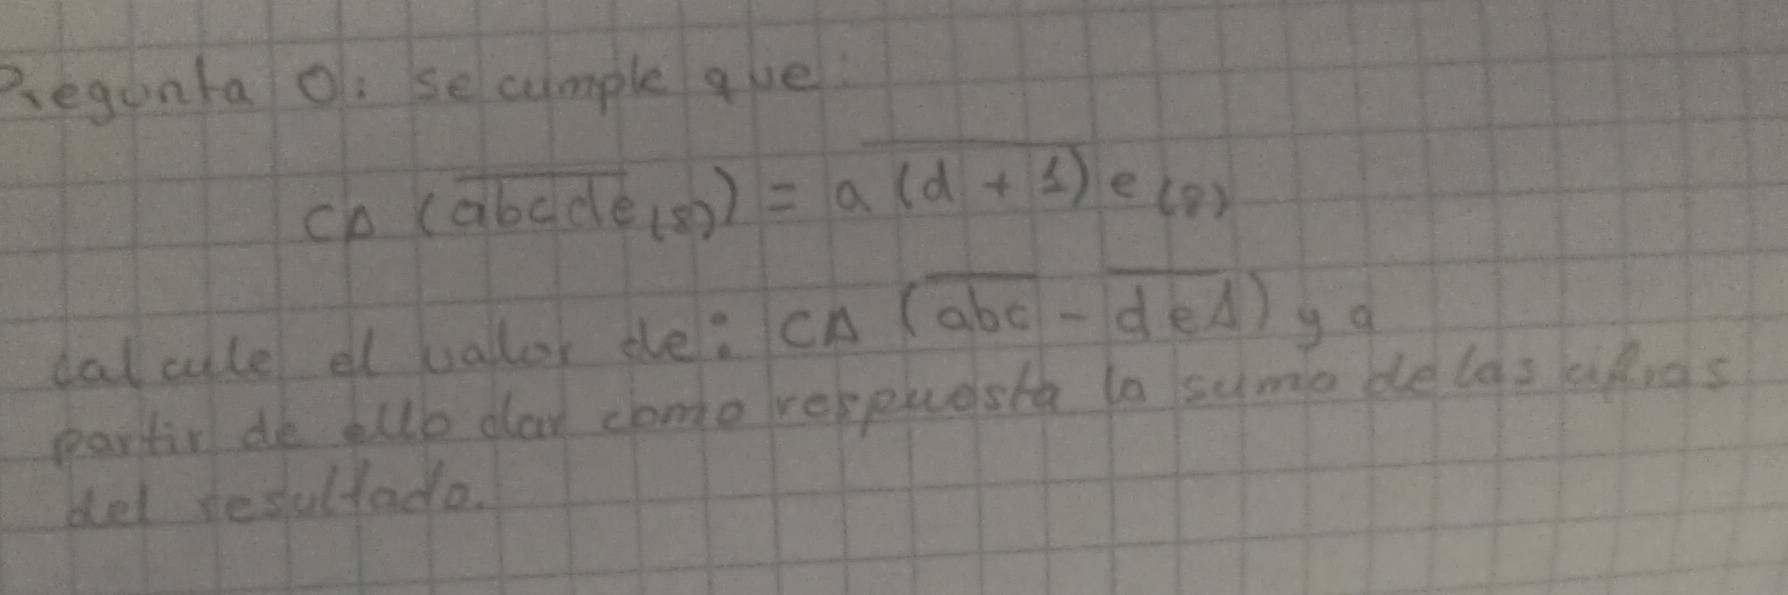 Pregunta 0: se cumple que:
CA (abcde(8)) = a(d+1)e(8)
calcule el valor de: CA (abc - de1) y a
partir de ello dar como respuesta la suma de las cifras
del resultado.